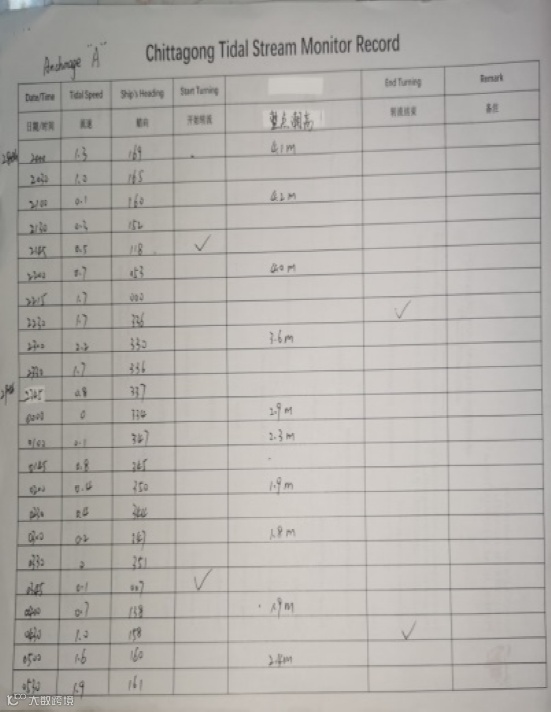 Anchorage "A"
Chittagong Tidal Stream Monitor Record
Date/Time Tidal Speed Ship's Heading Start Turning End Turning Remark
日期/时间 流速 船向 开始转流 整点潮高 转流结束 备注
2000 1.3 169 4.1m
2030 1.0 165
2100 0.1 160 4.2m
2130 0.3 152
2145 0.5 118 ✓
2200 0.7 053 4.0m
2215 1.7 000
2230 1.7 336 ✓
2300 2.2 330 3.6m
2330 1.7 336
2345 0.8 337
0000 0 334 2.9m
0100 0.1 347 2.3m
0145 0.8 345
0200 0.4 350 1.9m
0230 0.4 344
0300 0.2 347 1.8m
0330 0 351
0345 0.1 007 ✓
0400 0.7 138 1.9m
0430 1.0 158 ✓
0500 1.6 160 2.4m
0530 1.9 161
大数跨境